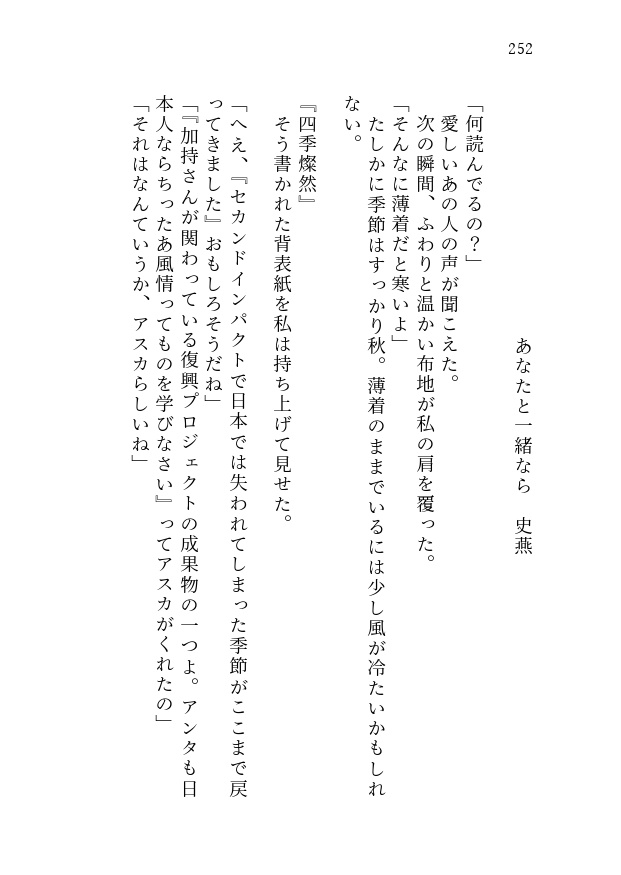 252
あなたと一緒なら　史燕
「何読んでるの？」
　愛しいあの人の声が聞こえた。
　次の瞬間、ふわりと温かい布地が私の肩を覆った。
「そんなに薄着だと寒いよ」
　たしかに季節はすっかり秋。薄着のままでいるには少し風が冷たいかもしれ
ない。
『四季燦然』
　そう書かれた背表紙を私は持ち上げて見せた。
「へえ、『セカンドインパクトで日本では失われてしまった季節がここまで戻
ってきました』おもしろそうだね」
「『加持さんが関わっている復興プロジェクトの成果物の一つよ。アンタも日
本人ならちったあ風情ってものを学びなさい』ってアスカがくれたの」
「それはなんていうか、アスカらしいね」